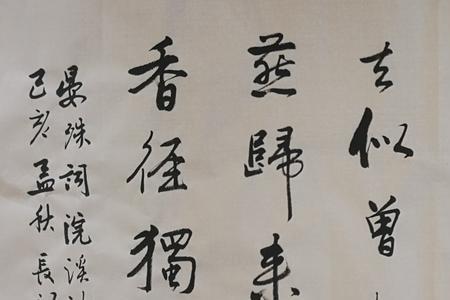 去似曾
燕歸来
香徑獨
晏殊詞浣溪
己亥孟秋長